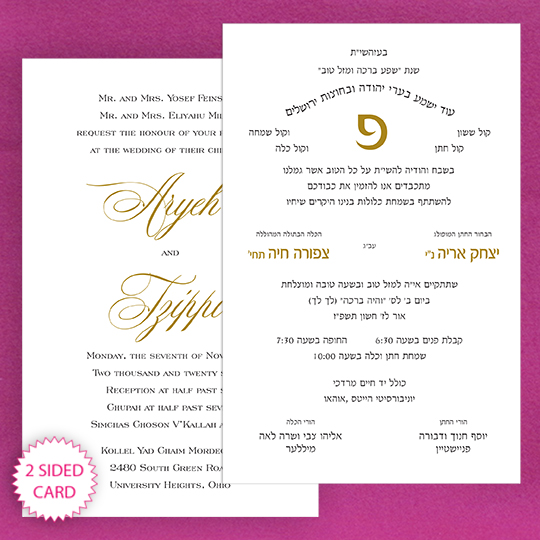 Mr. and Mrs. Yosef Feins
Mr. and Mrs. Eliyahu Mil
request the honour of your
at the wedding of their
Aryeh
and
Tzippi
Monday, the seventh of Nov
Two thousand and twenty s
Reception at half past s
Chupah at half past sev
Simchas Choson V'Kallah
Kollel Yad Chaim Mordec
2480 South Green Road
University Heights, Ohio
2 SIDED
CARD
בעיהשי"ת
שנת "שפע ברכה ומזל טוב"
עוד ישמע בערי יהודה ובחוצות ירושלים
פ
קול ששון וקול שמחה
קול חתן וקול כלה
בשבח והודיה להשי"ת על כל הטוב אשר גמלנו
מתכבדים אנו להזמין את כבודכם
להשתתף בשמחת כלולות בנינו היקרים שיחיו
הבחור החתן המופלג
יצחק אריה נ"י
עב"ג
הכלה הבתולה המהוללה
צפורה חיה תחי'
שתתקיים אי"ה למזל טוב ובשעה טובה ומוצלחת
ביום ב' לס' "והיה ברכה" (לך לך)
אור לז' חשון תשפ"ז
קבלת פנים בשעה 6:30 החופה בשעה 7:30
שמחת חתן וכלה בשעה 10:00
כולל יד חיים מרדכי
יוניברסיטי הייטס ,אוהאו
הורי החתן
יוסף חנוך ודבורה
פניישטיין
הורי הכלה
אליהו צבי ושרה לאה
מיללער